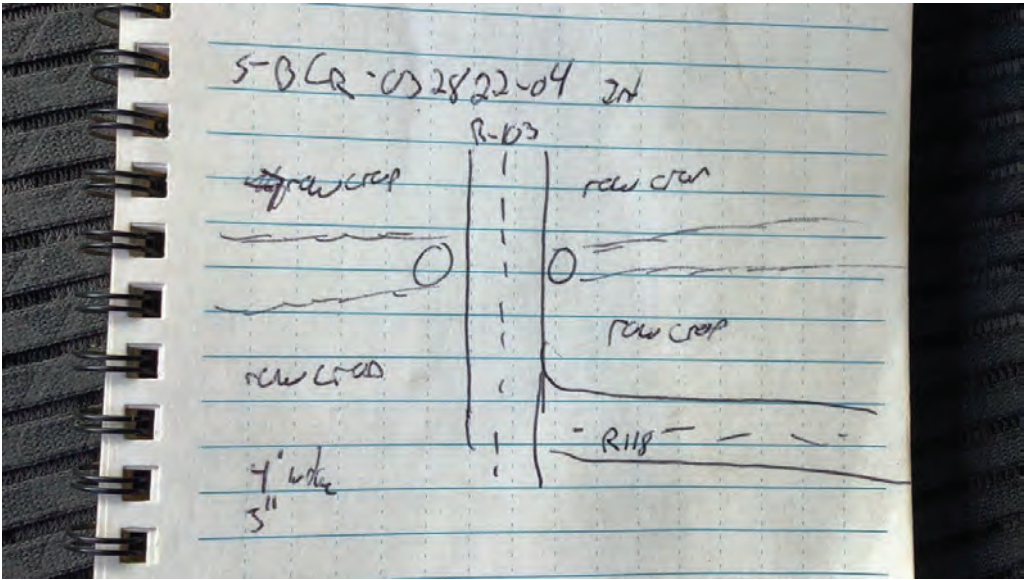 S-BCR-032822-04 IN
R-103
row crop
row crop
row crop
row crop
R118
4' wide
3"